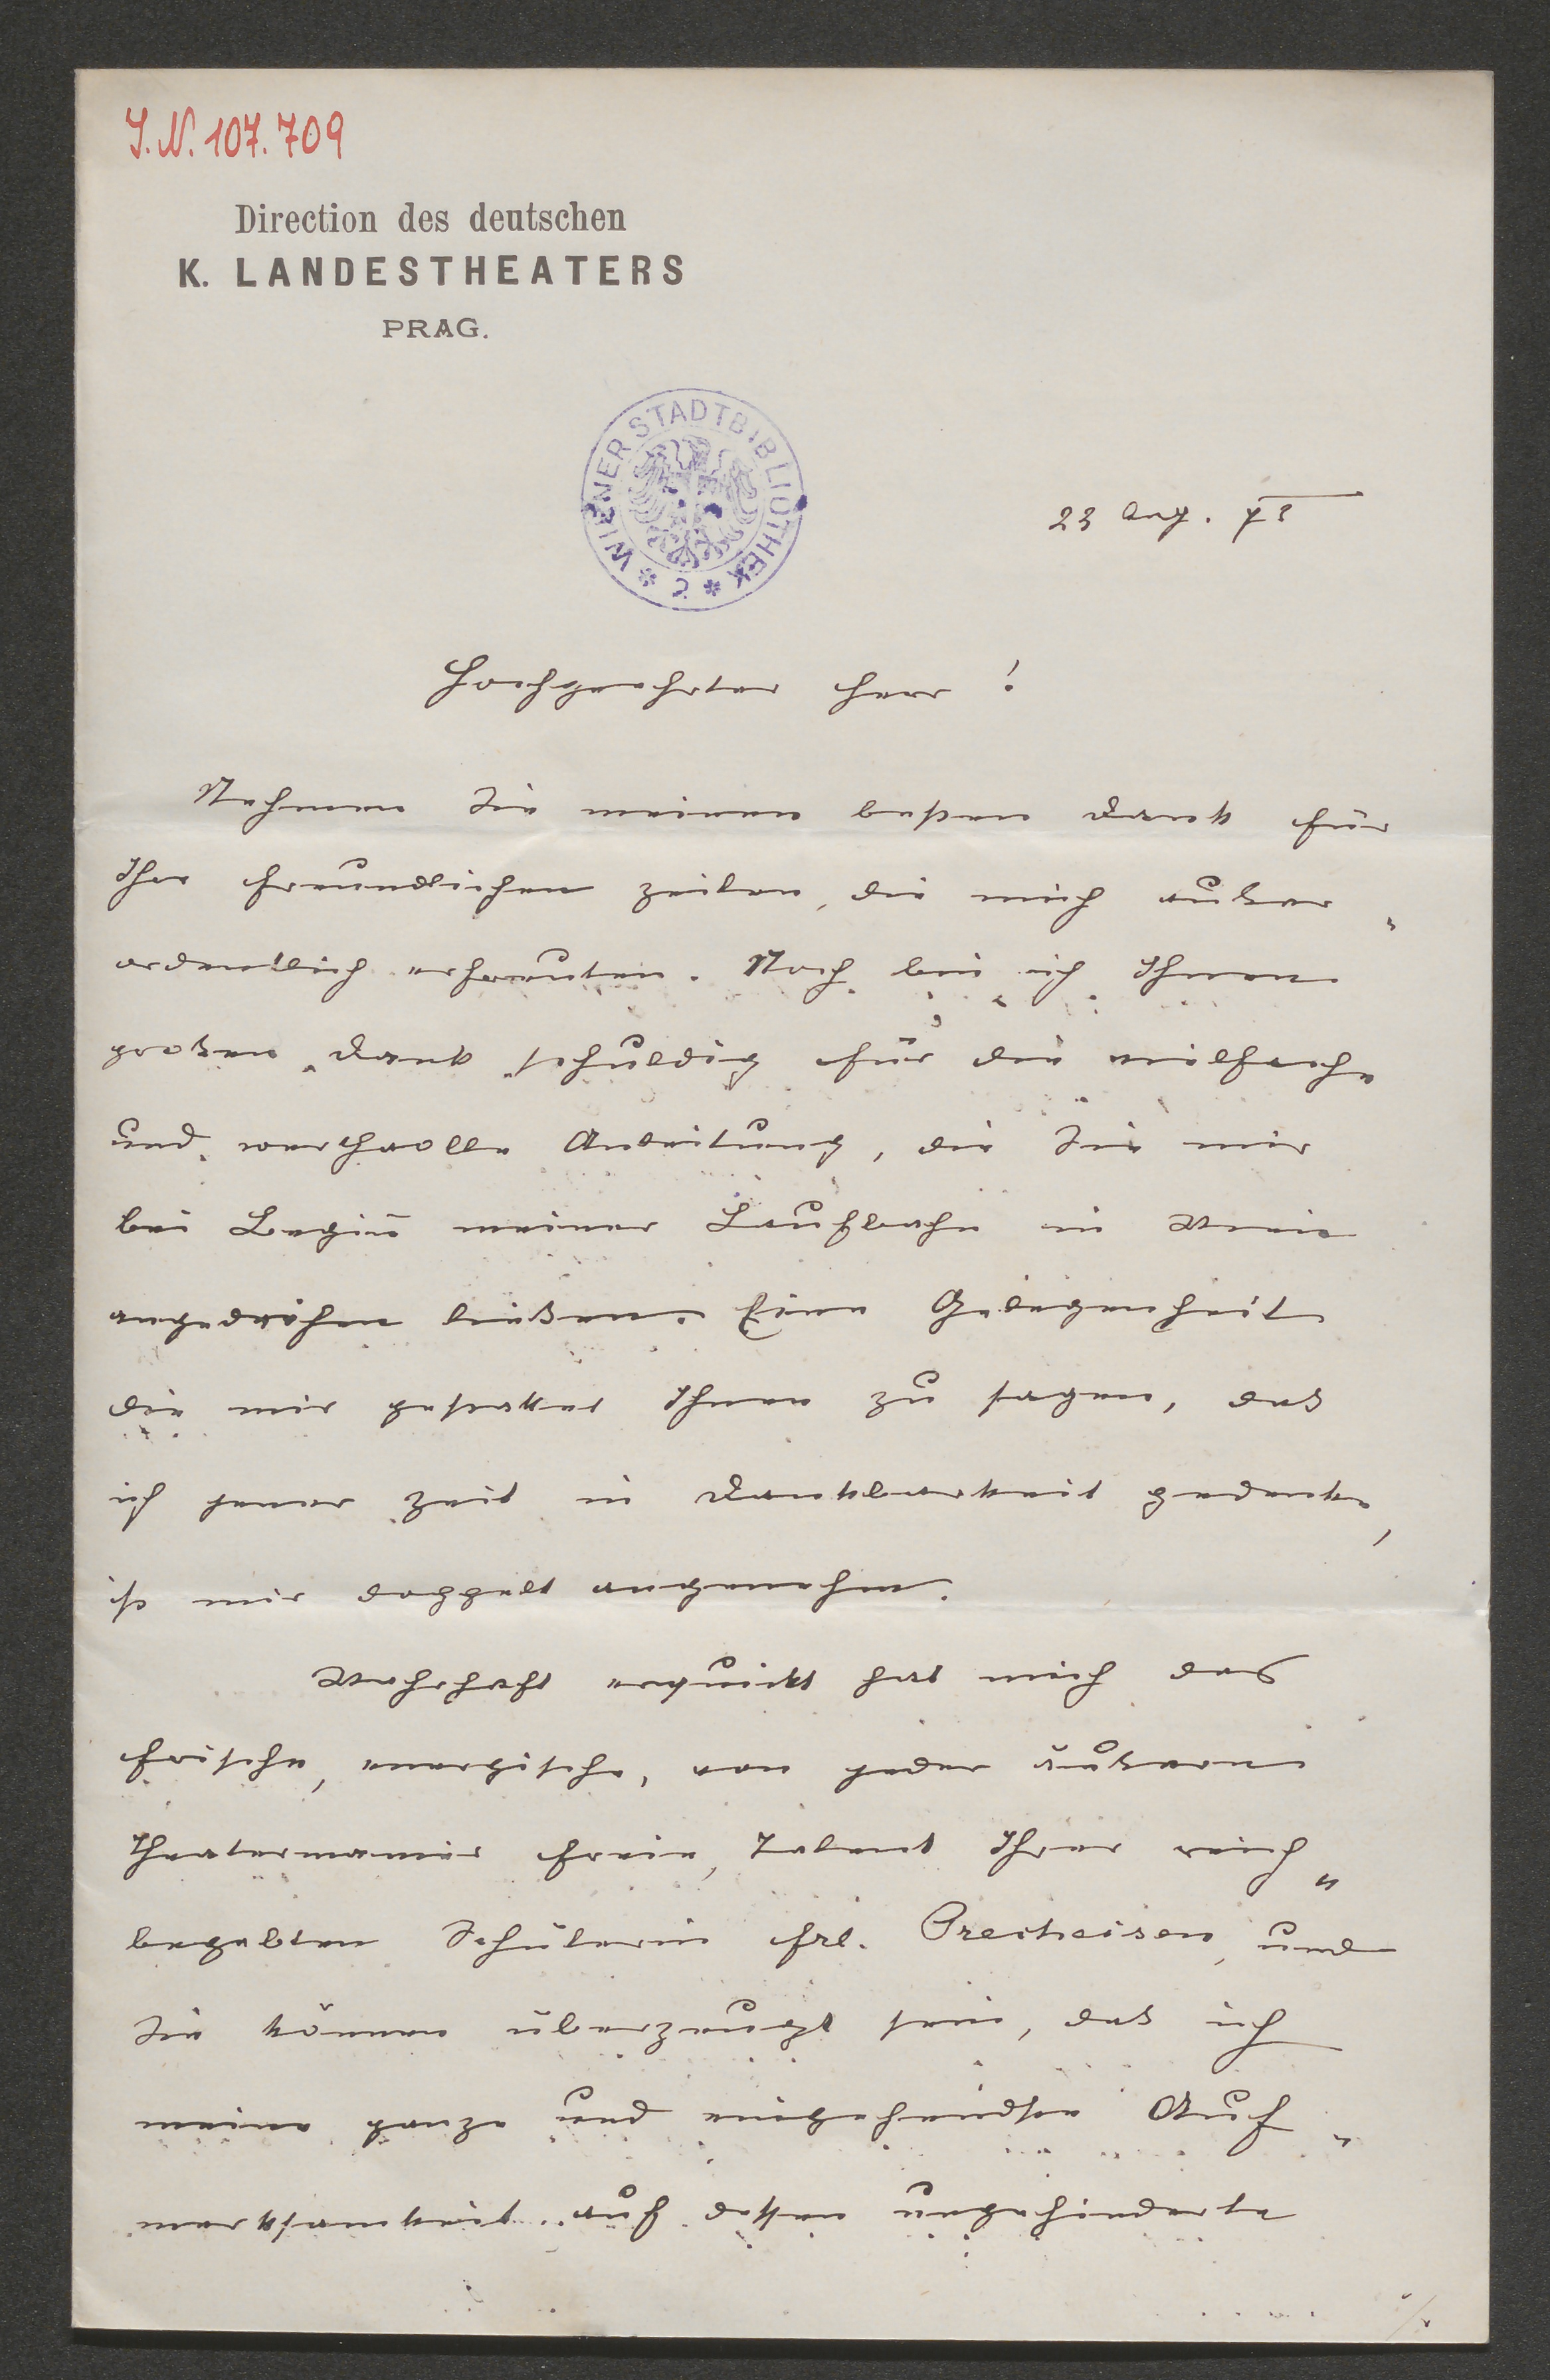 I.N. 107.709
Direction des deutschen
K. LANDESTHEATERS
PRAG.
WIENER STADTBIBLIOTHEK
23 Aug.
Hochgeehrter Herr!
Nehmen Sie meinen besten Dank für
Ihre freundlichen Zeilen, die mich außer„
ordentlich erfreuten. Noch bin ich Ihnen
großen Dank schuldig für die vielfache
und werthvolle Anleitung, die Sie mir
bei Begin̄ meiner Laufbahn in Wien
angedeihen ließen. Eine Gelegenheit
die mir gestattet Ihnen zu sagen, daß
ich jener Zeit in Dankbarkeit gedenke,
ist mir doppelt angenehm.
Wahrhaft erquickt hat mich das
frische, energische, von jeder äußern
Theatermanier freie, Talent Ihrer reich„
begabten Schülerin Frl. Precheisen, und
Sie können überzeugt sein, daß ich
meine ganze und eingehendste Auf„
merksamkeit auf dessen ungehinderte